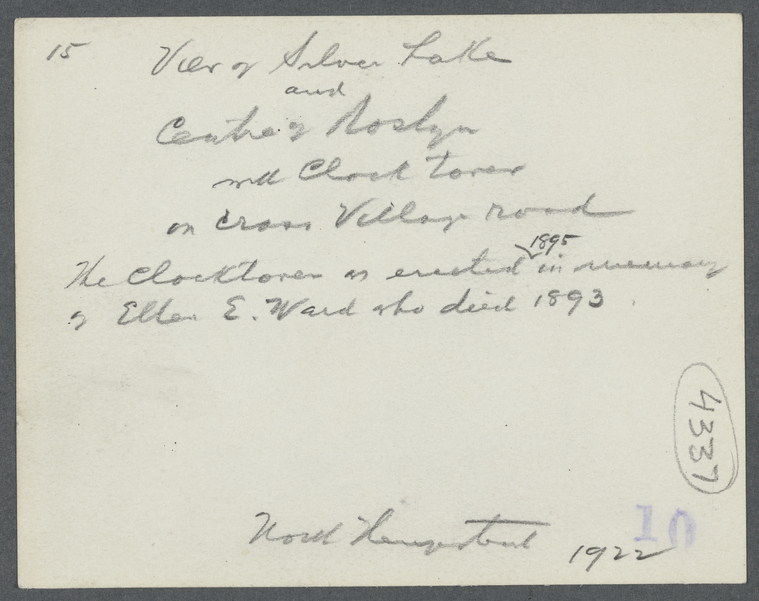 15 View of Silver Lake
and
Centre of Roslyn
with Clock Tower
on Cross Village road
1895
The Clocktower as erected in memory
of Ellen E. Ward who died 1893.
4337
North Hempstead
1922
10